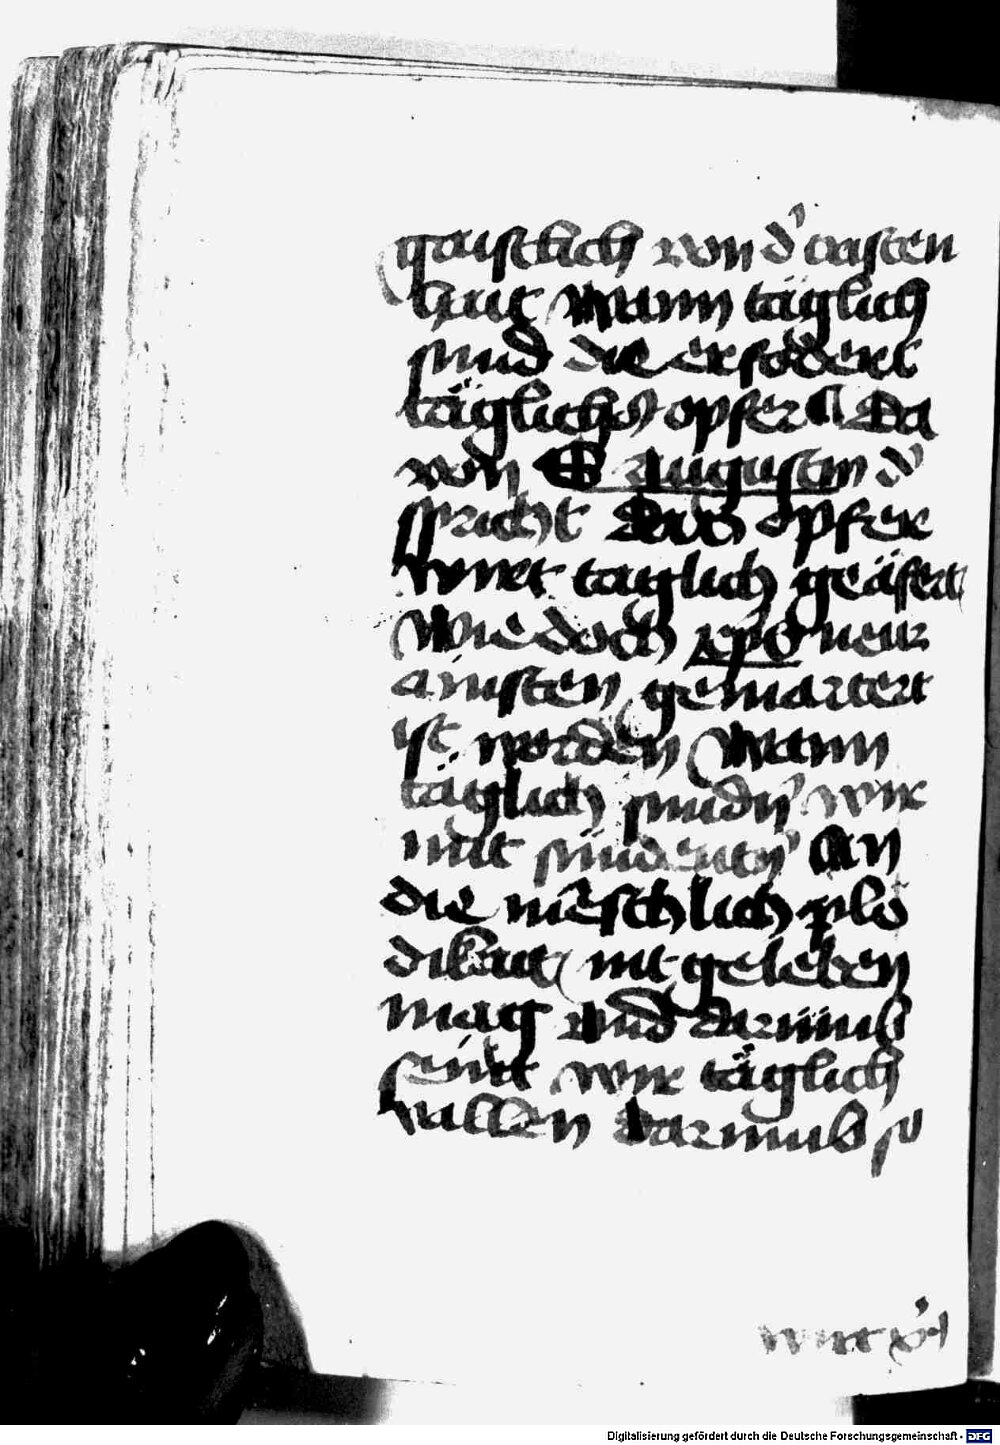 gaistlich von d' ersten
hait Wann täglich
sund die erfodert
täglichs opfer Da
von S Augustin d'
spricht Das opfer
wirt taglich geäfert
wie doch xpūs neur
ainsten gemartert
ist worden Wann
täglich sundn' wir
mit sünden An
die mēschlich plö
dikait nit geleben
mag vnd darumb
seint wir täglich
vallen Darumb so
wirt x'
Digitalisierung gefördert durch die Deutsche Forschungsgemeinschaft - DFG